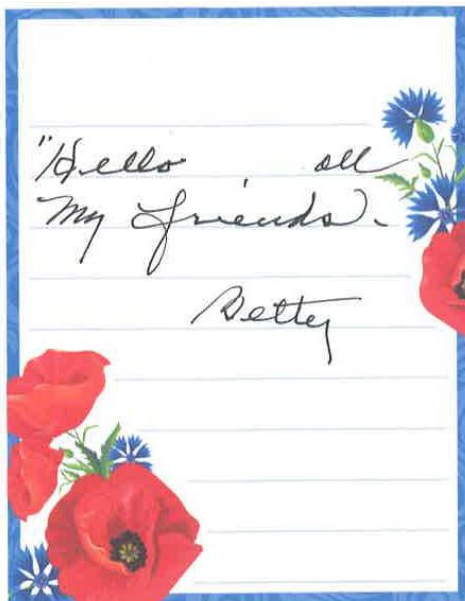 "Hello all
My friends.
Betty